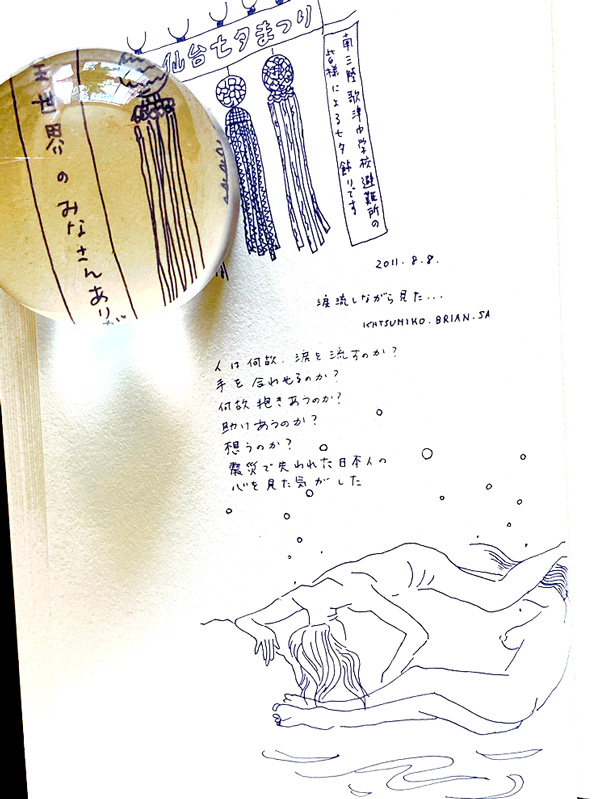 仙台七夕まつり
南三陸歌津中学校避難所の
皆様による七夕飾りです
全世界のみなさんありが
2011.8.8.
涙流しながら見た...
KATSUHIKO.BRIAN.SA
人は何故、涙を流すのか?
手を合わせるのか?
何故抱きあうのか?
助けあうのか?
想うのか?
震災で失われた日本人の
心を見た気がした